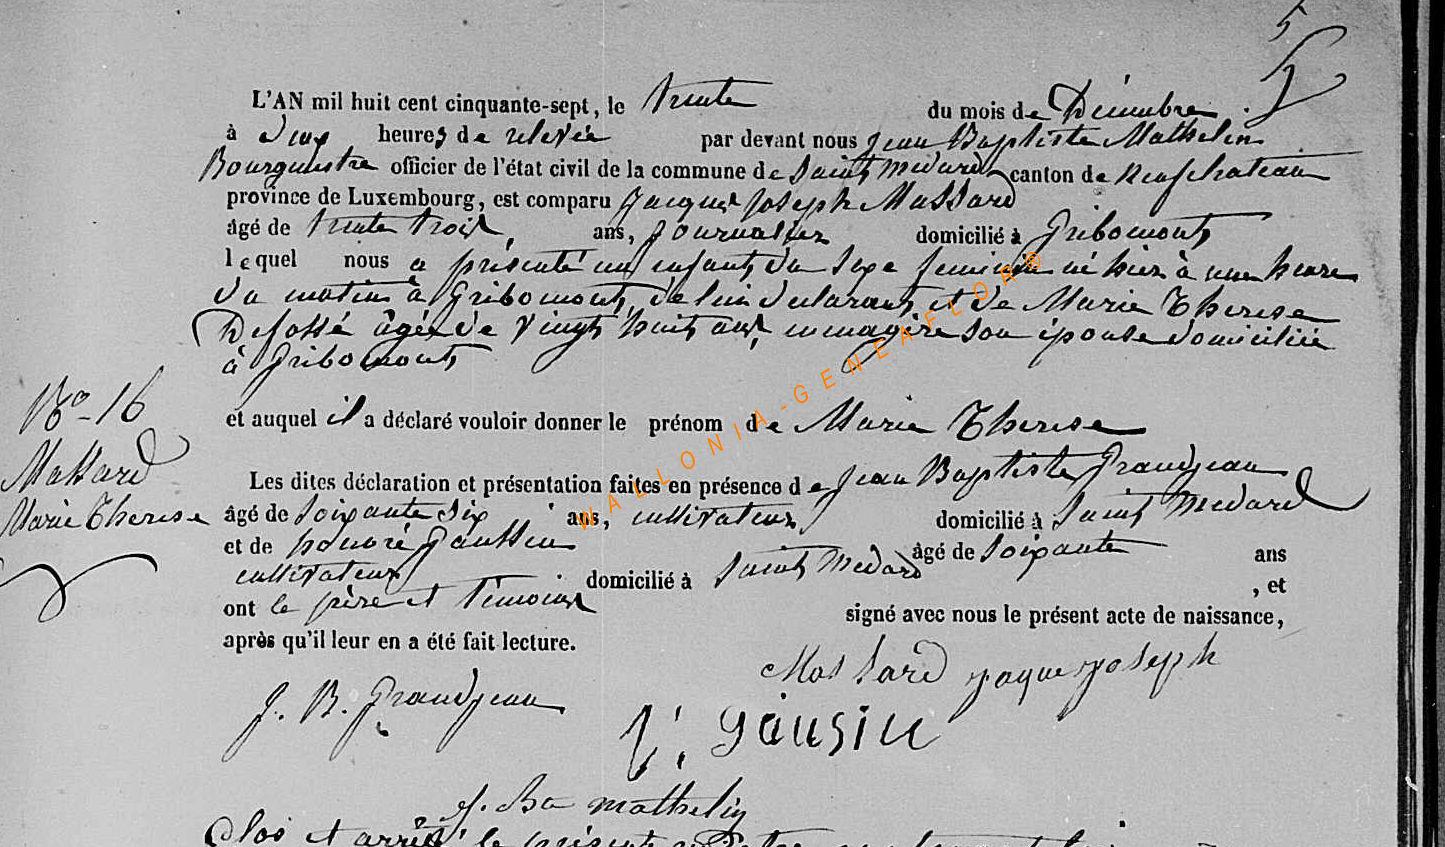 5
L'AN mil huit cent cinquante-sept, le trente du mois de Décembre
à deux heures de relevée par devant nous Jean Baptiste Mathelin
Bourguestre officier de l'état civil de la commune de Saint Médard canton de Neufchateau
province de Luxembourg, est comparu Jacques Joseph Massard
âgé de trente trois, ans, Journalier domicilié à Gribomont
lequel nous a présenté un enfant du sexe feminin né hier à une heure
du matin à Gribomont, de lui declarant et de Marie Therese
Defossé âgée de vingt huit ans, menagère son épouse domiciliée
à Gribomont
No 16
et auquel il a déclaré vouloir donner le prénom de Marie Therese
Massard
Les dites déclaration et présentation faites en présence de Jean Baptiste Grandjean
Marie Therese
âgé de soixante six ans, cultivateur domicilié à Saint Medard
et de honoré Gaussin âgé de soixante ans
cultivateur domicilié à Saint Medard , et
ont le père et témoins signé avec nous le présent acte de naissance,
après qu'il leur en a été fait lecture.
Massard jaque joseph
J. B. Grandjean
gausin
J. Bte mathelin
Clos et arrêté le présent
WALLONIA-GENEAFLOR©